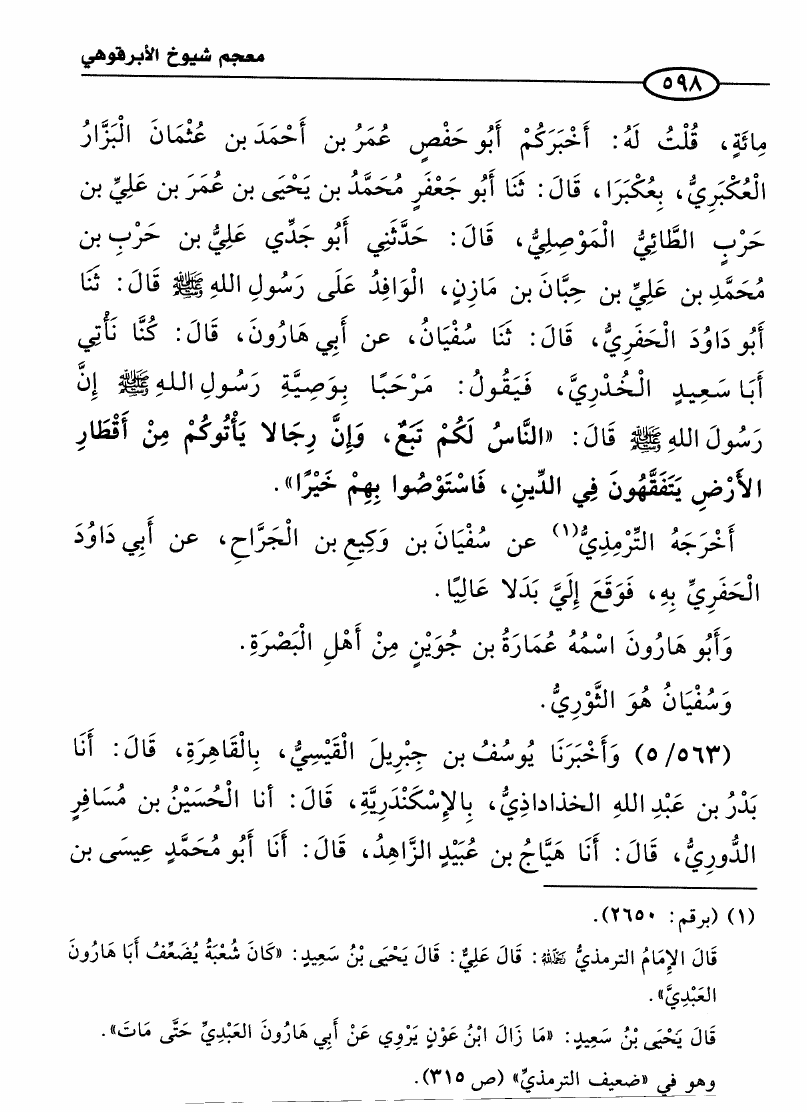 معجم شيوخ الأبرقوهي
٥٩٨
مِائَةٍ، قُلْتُ لَهُ: أَخْبَرَكُمْ أَبُو حَفْصٍ عُمَرُ بن أَحْمَدَ بن عُثْمَانَ الْبَزَّارُ
الْعُكْبَرِيُّ، بِعُكْبَرَا، قَالَ: ثَنَا أَبُو جَعْفَرٍ مُحَمَّدُ بن يَحْيَى بن عُمَرَ بن عَلِيِّ بن
حَرْبٍ الطَّائِيُّ الْمَوْصِلِيُّ، قَالَ: حَدَّثَنِي أَبُو جَدِّي عَلِيُّ بن حَرْبِ بن
مُحَمَّدِ بن عَلِيِّ بن حِبَّانَ بن مَازِنٍ، الْوَافِدُ عَلَى رَسُولِ اللهِ ﷺ قَالَ: ثَنَا
أَبُو دَاوُدَ الْحَفَرِيُّ، قَالَ: ثَنَا سُفْيَانُ، عن أَبِي هَارُونَ، قَالَ: كُنَّا نَأْتِي
أَبَا سَعِيدٍ الْخُدْرِيَّ، فَيَقُولُ: مَرْحَبًا بِوَصِيَّةِ رَسُولِ اللهِ ﷺ إِنَّ
رَسُولَ اللهِ ﷺ قَالَ: «النَّاسُ لَكُمْ تَبَعٌ، وَإِنَّ رِجَالا يَأْتُوكُمْ مِنْ أَقْطَارِ
الأَرْضِ يَتَفَقَّهُونَ فِي الدِّينِ، فَاسْتَوْصُوا بِهِمْ خَيْرًا».
أَخْرَجَهُ التِّرْمِذِيُّ(١) عن سُفْيَانَ بن وَكِيعِ بن الْجَرَّاحِ، عن أَبِي دَاوُدَ
الْحَفَرِيِّ بِهِ، فَوَقَعَ إِلَيَّ بَدَلا عَالِيًا.
وَأَبُو هَارُونَ اسْمُهُ عُمَارَةُ بن جُوَيْنٍ مِنْ أَهْلِ الْبَصْرَةِ.
وَسُفْيَانُ هُوَ الثَّوْرِيُّ.
(٥/٥٦٣) وَأَخْبَرَنَا يُوسُفُ بن جِبْرِيلَ الْقَيْسِيُّ، بِالْقَاهِرَةِ، قَالَ: أَنَا
بَدْرُ بن عَبْدِ اللهِ الخذاداذِيُّ، بِالإِسْكَنْدَرِيَّةِ، قَالَ: أنا الْحُسَيْنُ بن مُسَافِرٍ
الدُّورِيُّ، قَالَ: أَنَا هَيَّاجُ بن عُبَيْدٍ الزَّاهِدُ، قَالَ: أَنَا أَبُو مُحَمَّدٍ عِيسَى بن
(١) (برقم: ٢٦٥٠).
قَالَ الإِمَامُ الترمذيُّ رَحِمَهُ اللهُ: قَالَ عَلِيٌّ: قَالَ يَحْيَى بْنُ سَعِيد: «كَانَ شُعْبَةُ يُضَعِّفُ أَبَا هَارُونَ
العَبْدِيَّ».
قَالَ يَحْيَى بْنُ سَعِيدٍ: «مَا زَالَ ابْنُ عَوْنٍ يَرْوِي عَنْ أَبِي هَارُونَ العَبْدِيِّ حَتَّى مَاتَ».
وهو في «ضعيف الترمذيّ» (ص ٣١٥).